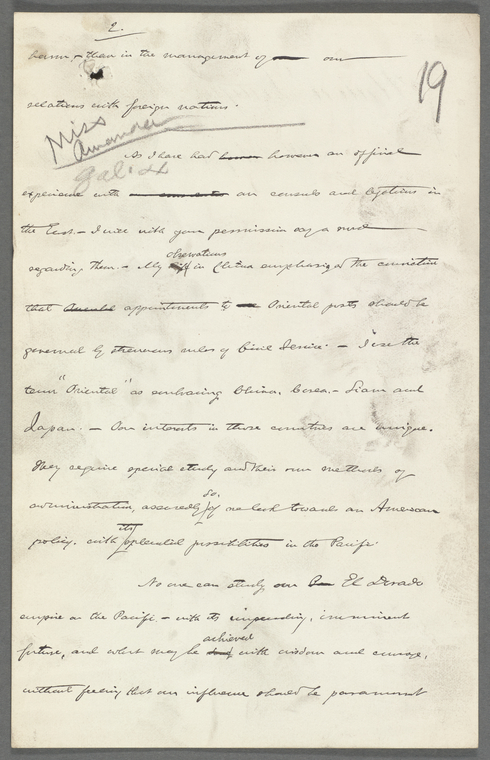 2.
19
harm, - than in the management of our
relations with foreign nations.
Miss
Amander
gal: 4
As I have had however an official
experience with our consuls and legations in
the East. - I will with your permission say a word
regarding them. - My observations in China emphasized the conviction
that appointments to Oriental posts should be
governed by strenuous rules of Civil Service. - I use the
term "Oriental" as embracing China, Corea, - Siam and
Japan. - Our interests in those countries are unique.
They require special study and their own methods of
administration, assuredly so, if we look towards an American
policy, with its splendid possibilities in the Pacific.
No one can study our El Dorado
empire on the Pacific, - with its impending, imminent
future, and what may be achieved with wisdom and courage,
without feeling that our influence should be paramount